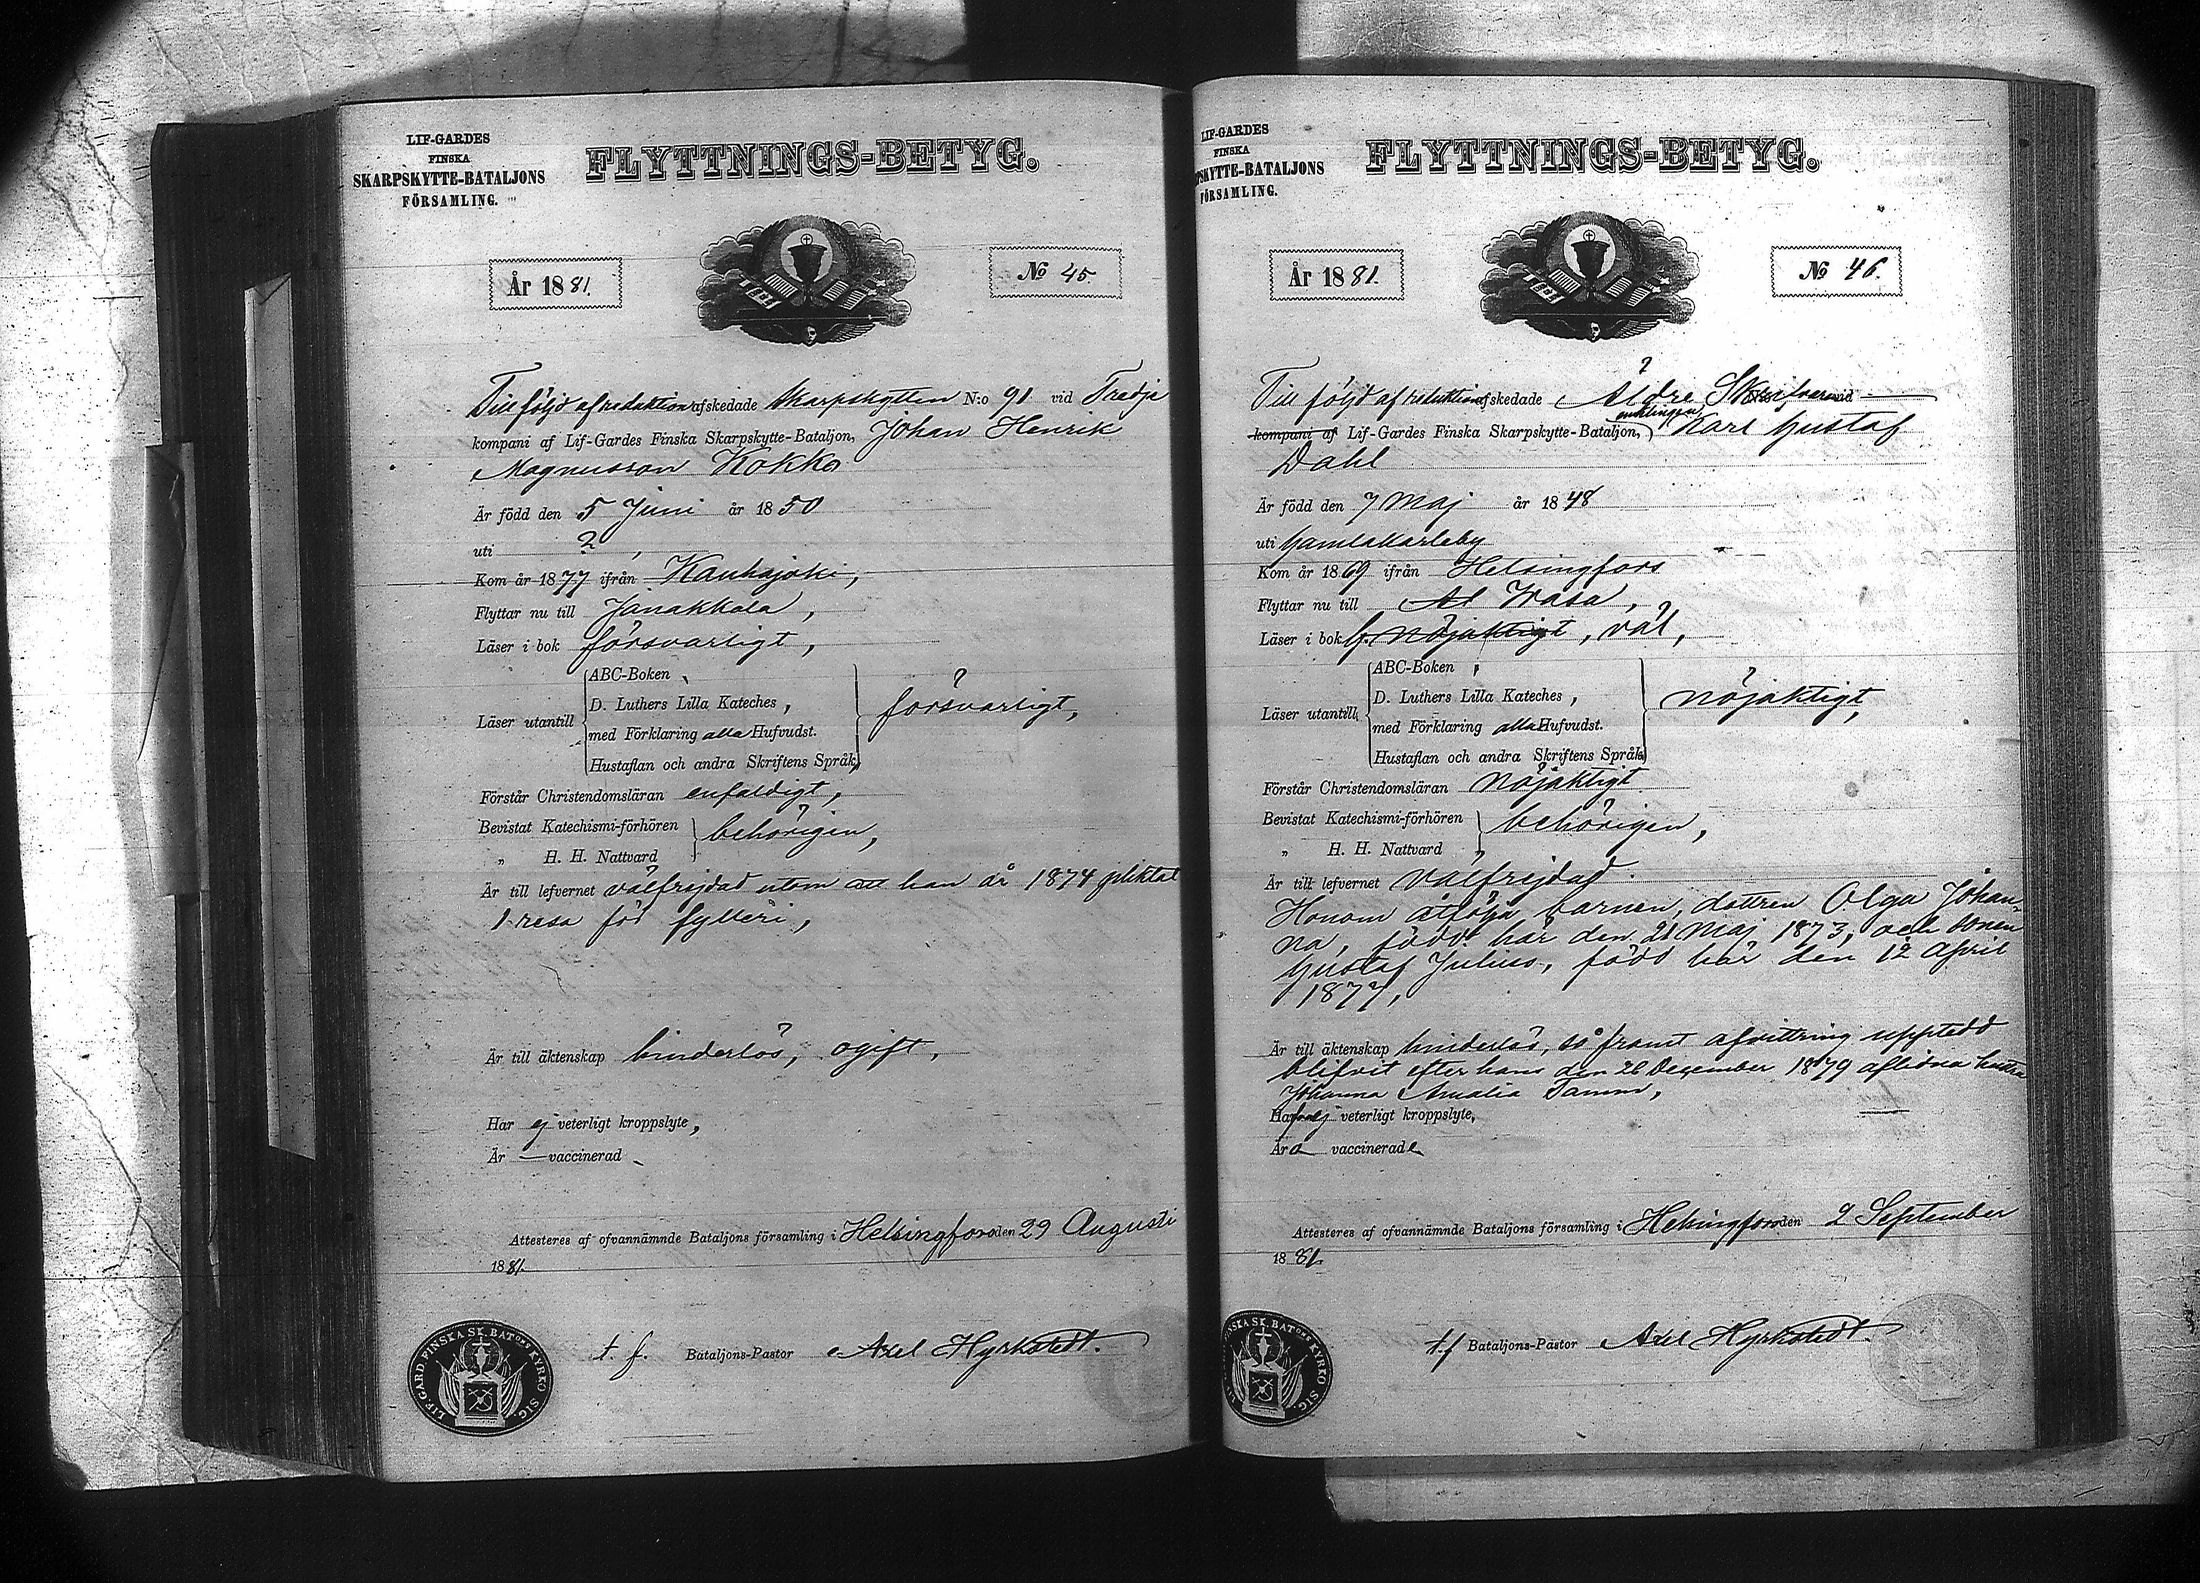 LIF-GARDES
FINSKA
SKARPSKYTTE-BATALJONS
FÖRSAMLING.
FLYTTNINGS-BETYG.
År 1881.
No 45.
Till följd af reduktion afskedade Skarpskytten N:o 91 vid Tredje
kompani af Lif-Gardes Finska Skarpskytte-Bataljon, Johan Henrik
Magnusson Kokko
Är född den 5 Juni år 1850
uti ?,
Kom år 1877 ifrån Kauhajoki,
Flyttar nu till Janakkala,
Läser i bok försvarligt,
Läser utantill
ABC-Boken,
D. Luthers Lilla Kateches,
med Förklaring alla Hufvudst.
Hustaflan och andra Skriftens Språk,
försvarligt,
Förstår Christendomsläran enfaldigt,
Bevistat Katechismi-förhören
„ H. H. Nattvard
behörigen,
Är till lefvernet välfrejdad utom att han år 1874 pliktat
1 resa för fylleri,
Är till äktenskap hinderlös, ogift,
Har ej veterligt kroppslyte,
Är — vaccinerad
Attesteras af ofvannämnde Bataljons församling i Helsingfors den 29 Augusti
1881.
t. f. Bataljons-Pastor Axel Hyrkstedt.
LIF-GARD. FINSKA SK. BATONS KYRKO SIG.
LIF-GARDES
FINSKA
PSKYTTE-BATALJONS
FÖRSAMLING.
FLYTTNINGS-BETYG.
År 1881.
No 46.
Till följd af reduktion afskedade Äldre Skrifvaren vid —
kompani af Lif-Gardes Finska Skarpskytte-Bataljon, enklingen Karl Gustaf
Dahl
Är född den 7 Maj år 1848
uti Gamlakarleby
Kom år 1869 ifrån Helsingfors
Flyttar nu till Wasa,
Läser i bok nöjaktigt, väl,
Läser utantill
ABC-Boken,
D. Luthers Lilla Kateches,
med Förklaring alla Hufvudst.
Hustaflan och andra Skriftens Språk
nöjaktigt,
Förstår Christendomsläran nöjaktigt
Bevistat Katechismi-förhören
„ H. H. Nattvard
behörigen,
Är till lefvernet välfrejdad.
Honom åtfölja barnen, dottren Olga Johan-
na, född här den 21 Maj 1873, och sonen
Gustaf Julius, född här den 12 April
1877,
Är till äktenskap hinderlös, så framt afvittring upptedd
blifvit efter hans den 26 December 1879 aflidna hustru
Johanna Amalia Tamm,
Ha fva ej veterligt kroppslyte,
Är a vaccinerade
Attesteras af ofvannämnde Bataljons församling i Helsingfors den 2 September
1881.
t.f Bataljons-Pastor Axel Hyrkstedt.
FINSKA SK. BATONS KYRKO SIG.